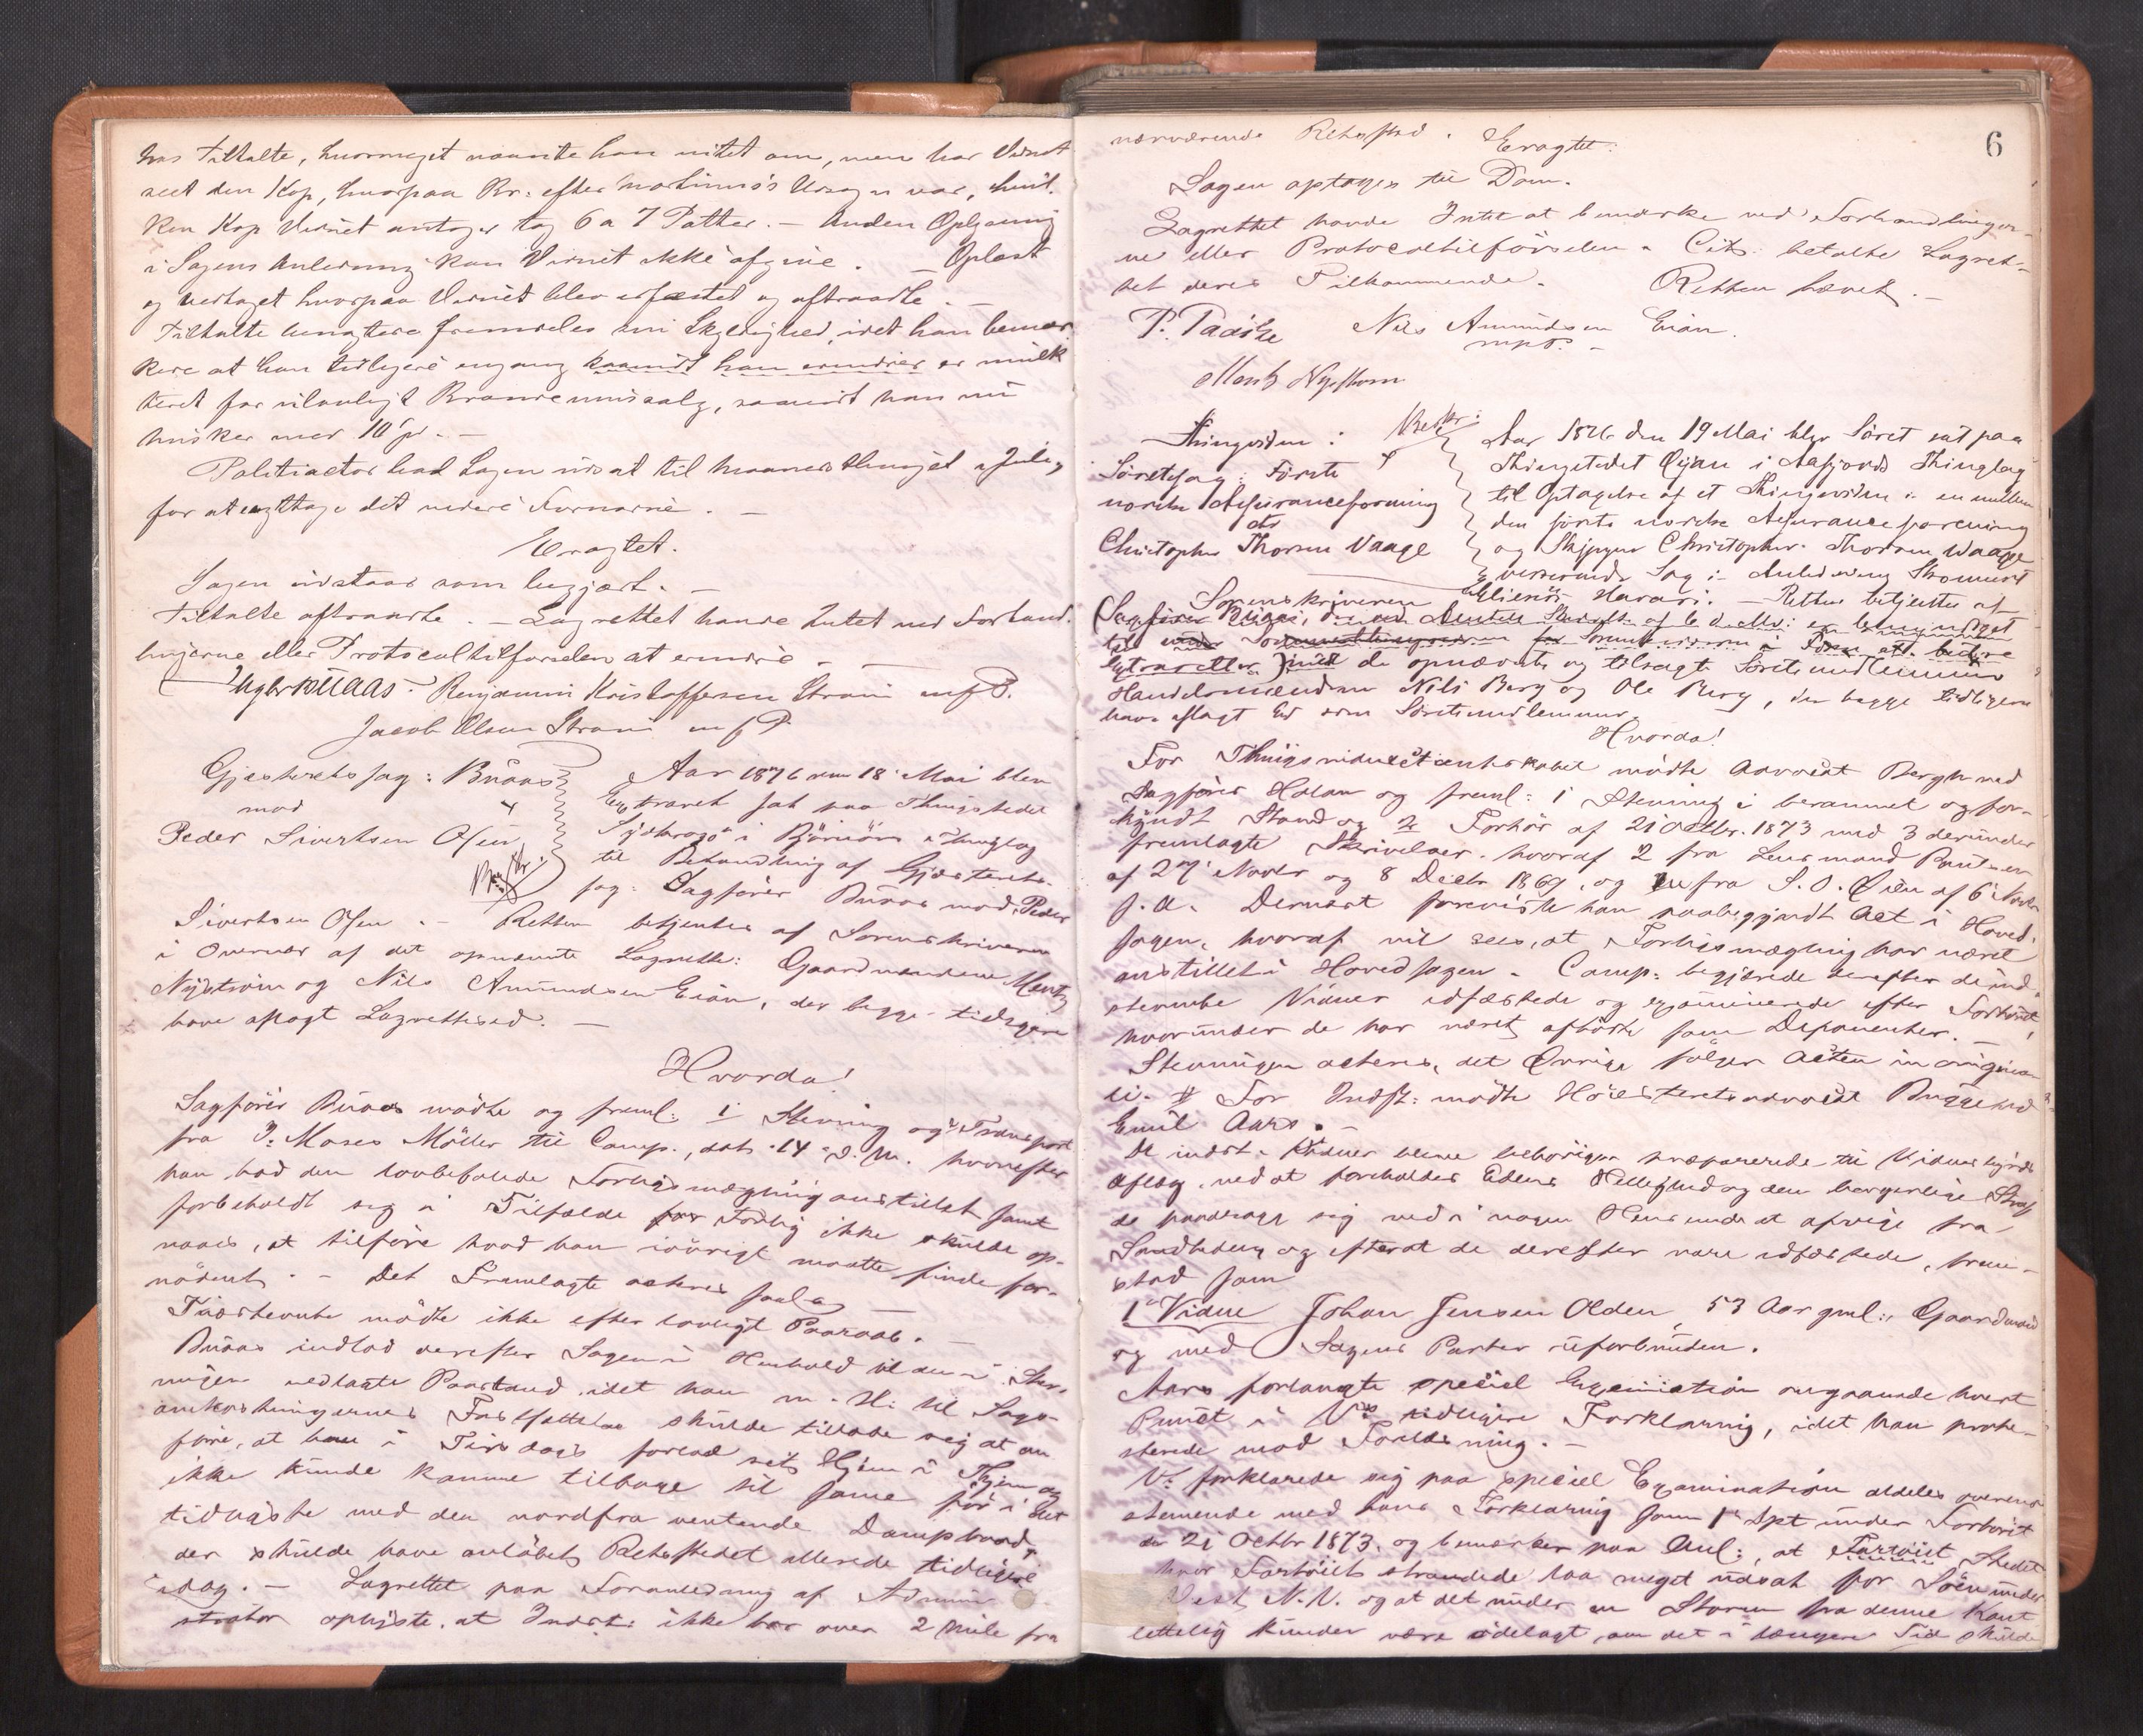 hos Tiltalte, hvormeget naaite han vidst om, men har Vidnet
seet den Kop, hvorpaa Br: efter Martinus's Udsagn var, hvil-
ken Kop Vidnet antager tog 6 a 7 Potter. – Anden Oplysning
i Sagens Anledning kan Vidnet ikke afgive. – Oplæst
og vedtaget hvorpaa Vidnet blev edfæstet og aftraadte. –
Tiltalte benegtede fremdeles sin Skyldighed, idet han bemær
kede at han tidligere engang saavidt han erindrer er mulk
teret for ulovligt Brændevinssalg, saavidt han nu
husker med 10 Spd. –
Politiactor bad Sagen udsat til Maanedsthinget i Juli,
for at iagttage det videre Fornødne. –
Eragtet.
Sagen udstaar som begjært. –
Tiltalte aftraadte. – Lagrettet havde Intet ved Forhand-
lingerne eller Protocoltilførselen at erindre. –
Benjamin Kristoffersen Strøm m f P.
Jacob Olsen Strøm m f P
Gjæsteretssag: Buaas
mod
Peder Sivertsen Ofsen
Aar 1876 den 18 Mai blev
Extraret sat paa Thingstedet
i Bjørnørs Thinglag
til Behandling af Gjæsterets-
sag: Sagfører Buaas mod Peder
Sivertsen Ofsen. – Retten betjentes af Sorenskriveren
i Overvær af det opnævnte Lagrette: Gaardmændene Mentz
Nystrøm og Nils Amundsen Eian, der begge tidligere
have aflagt Lagrettesed. –
Hvorda!
Sagfører Buaas mødte og freml: 1 Stevning og Transport
fra J. Moses Møller til Comp., dat. 14 d. M. hvorefter
han bad den lovbefalede Forligsmægling anstillet samt
forbeholdt sig i Tilfælde for Forlig ikke skulde op-
naaes, at tilføre hvad han iøvrigt maatte finde for-
nødent. – Det Fremlagte acteres saal.
Indstevnte mødte ikke efter lovligt Paaraab. –
Buaas indlod derefter Sagen i Henhold til den i Stev-
ningen nedlagte Paastand, idet han m. H. til Sags-
omkostningernes Fastsættelse skulde tillade sig at an
føre, at han i Tirsdags forlod sit Hjem i Thjem og
ikke kunde komme tilbage til samme før i det
tidligste med den nordfra ventende Dampbaad,
der skulde have anløbet Retsstedet allerede tidligere
idag. – Lagrettet paa Foranledning af Admini
strator oplyste, at Indst: ikke bor over 2 Mile fra
6
nærværende Retssted. Eragtet:
Sagen optages til Dom.
Lagrettet havde Intet at bemærke ved Forhandlinger-
ne eller Protocoltilførselen. Cit: betalte Lagret-
tet deres Tilkommende. Retten hævet. –
P. Paaske Nils Amundsen Eian.
m p P. –
Mentz Nystrøm
Thingsvidne:
Søretssag: Første
norske Assuranceforening
ctr
Christopher Thorsen Vaage
Aar 1876 den 19 Mai blev Søret sat paa
Thingstedet Øijan i Aafjords Thinglag
til Optagelse af et Thingsvidne i en mellem
den første norske Assuranceforening
og Skipper Christopher Thorsen Waage
verserende Sag i Anledning Skonnert
Elienor Havari. – Retten betjentes af
Sorenskriveren
med de opnævnte og tilsagte Søretsmedlemmer
Handelsmændene Nils Berg og Ole Berg, der begge tidligere
have aflagt Ed som Søretsmedlemmer.
Hvorda!
For Thingsvidnectientskabet mødte Advocat Bergh ved
Sagfører Hoxan og freml: 1 Stevning i berammet og for-
kyndt Stand og 2 Forhør af 21 October 1873 med 3 derunder
fremlagte Skrivelser, hvoraf 2 fra Lensmand Paulsen
af 27 Novbr og 8 Decbr 1869, og en fra S. O. Øien af 6 Novbr
s. A. Dernæst foreviste han paabegyndt Act i Hoved-
sagen, hvoraf vil sees, at Forligsmægling har været
anstillet i Hovedsagen. Comp: begjærede derefter de ind-
stevnte Vidner edfæstede og examinerede efter Forhøret,
hvorunder de har været afhørte som Deponenter. –
Stevningen acteres, det Øvrige følger Acten in origina
li. # For Indst: mødte Høiesteretsadvocat Bugge ved
Emil Aars. –
De indst. Vidner bleve behørigen præparerede til Vidnesbyrds
Aflæg, ved at foreholdes Edens Hellighed og den borgerlige Straf
de paadrage sig ved i nogen Henseende at afvige fra
Sandheden og efterat de derefter vare edfæstede, frem-
stod som
1ste Vidne Johan Jensen Olden, 53 Aar gml:, Gaardmand
og med Sagens Parter uforbunden.
Aars forlangte speciel Examination angaaende hvert
Punct i V's tidligere Forklaring, idet han prote-
sterede mod Foreldsning. –
V. forklarede sig paa speciel Examination aldeles overens
stemmende med hans Forklaring som 1ste Dpt under Forhøret
den 21 Octbr 1873, og bemærker paa Anl:, at Stedet
hvor Fartøiet strandede laa meget udsat for Søen under
Vest N.V. og at det under en Storm fra denne Kant
lettelig kunde være ødelagt, om det i længere Tid skulde